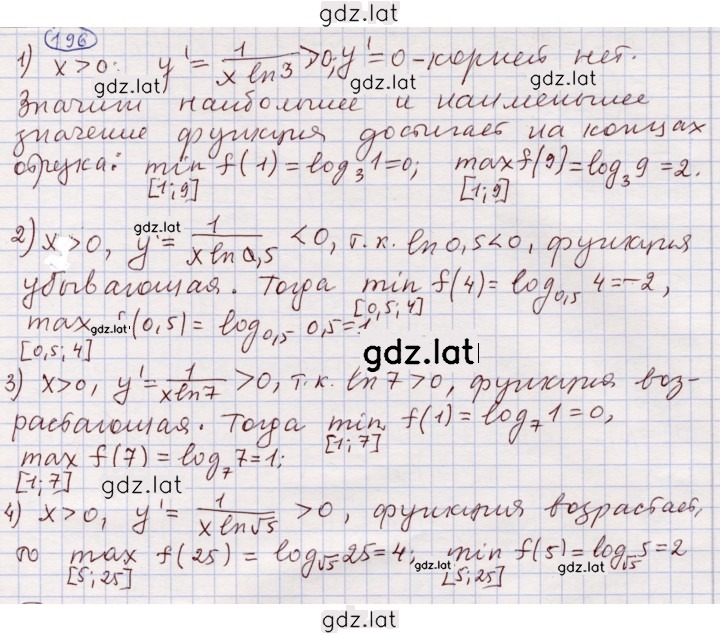 gdz.lat
196
1) x>0: y' = 1/(x ln 3) >0; y'=0 - корней нет.
gdz.lat gdz.lat
Значит наибольшее и наименьшее
значение функция достигает на концах
отрезка: min f(1) = log₃1=0; max f(9)=log₃9=2.
[1;9] [1;9]
gdz.lat gdz.lat
2) x>0, y' = 1/(x ln 0,5) <0, т.к. ln 0,5<0, функция
убывающая. Тогда min f(4) = log₀,₅ 4=-2,
[0,5; 4]
max f(0,5) = log₀,₅ 0,5=1
gdz.lat
[0,5; 4]
gdz.lat
3) x>0, y' = 1/(x ln 7) >0, т.к. ln 7>0, функция воз-
растающая. Тогда min f(1) = log₇1=0,
[1; 7]
max f(7) = log₇7=1;
[1; 7]
gdz.lat gdz.lat
4) x>0, y' = 1/(x ln√5) >0, функция возрастает,
то max f(25) = log√5 25=4; min f(5)=log√5 5=2
[5; 25] [5; 25]
gdz.lat gdz.lat
gdz.lat